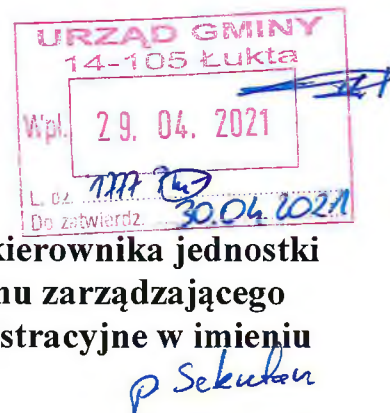 URZĄD GMINY
14-105 Łukta
Wpł. 29. 04. 2021
L. dz. 1777
Do zatwierdz. 30.04.2021
kierownika jednostki
nu zarządzającego
stracyjne w imieniu
p Sekretarz